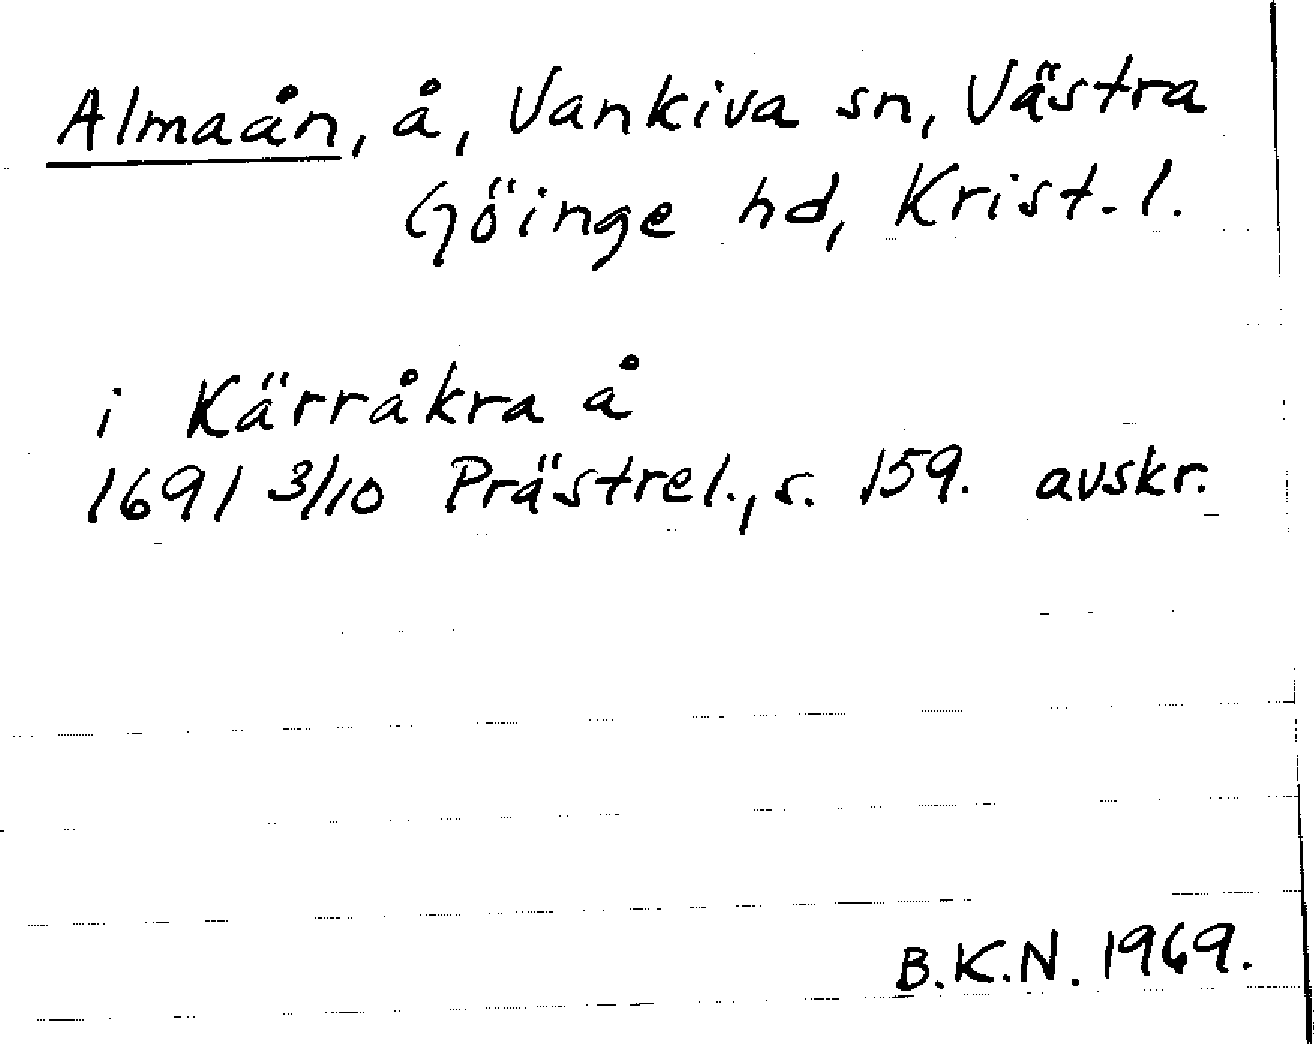 Almaån, å, Vankiva sn, Västra
Göinge hd, Krist. l.
i Kärråkra å
1691 3/10 Prästrel., s. 159. avskr.
B.K.N. 1969.